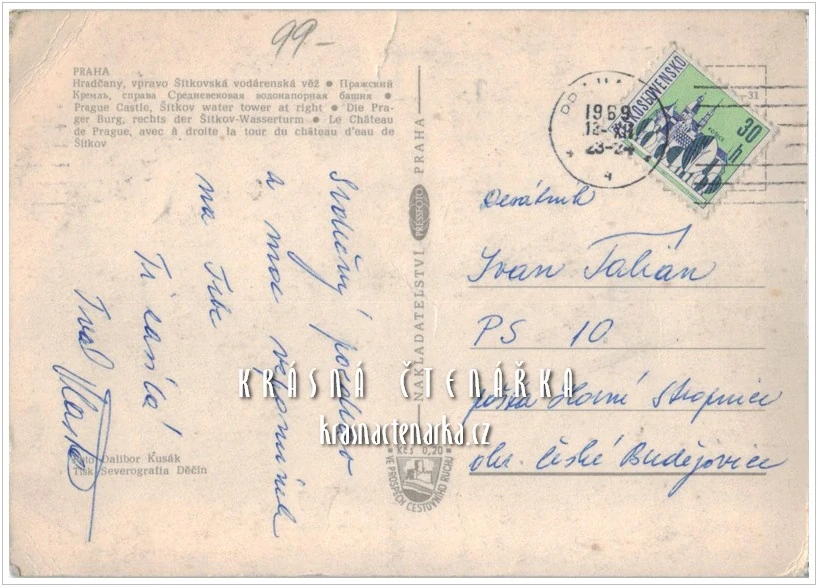 99-
PRAHA
Hradčany, vpravo Šítkovská vodárenská věž ● Пражский
Кремль, справа Средневековая водонапорная башня ●
Prague Castle, Šítkov water tower at right ● Die Pra-
ger Burg, rechts der Šítkov-Wasserturm ● Le Château
de Prague, avec à droite la tour du château d'eau de
Šítkov
Srdečný pozdrav
a moc vzpomínek
na Tebe
Ti zasílá
Tvá Vlasta
Foto Dalibor Kusák
Tisk Severografia Děčín
NAKLADATELSTVÍ PRESSFOTO PRAHA
Kčs 0,20
VE PROSPĚCH CESTOVNÍHO RUCHU
1969
12.-XII
23-24
4
ČESKOSLOVENSKO
30 h
31
Desátník
Ivan Talián
PS 10
pošta Horní Stropnice
okr. České Budějovice
KRÁSNÁ ČTENÁŘKA
krasnactenarka.cz